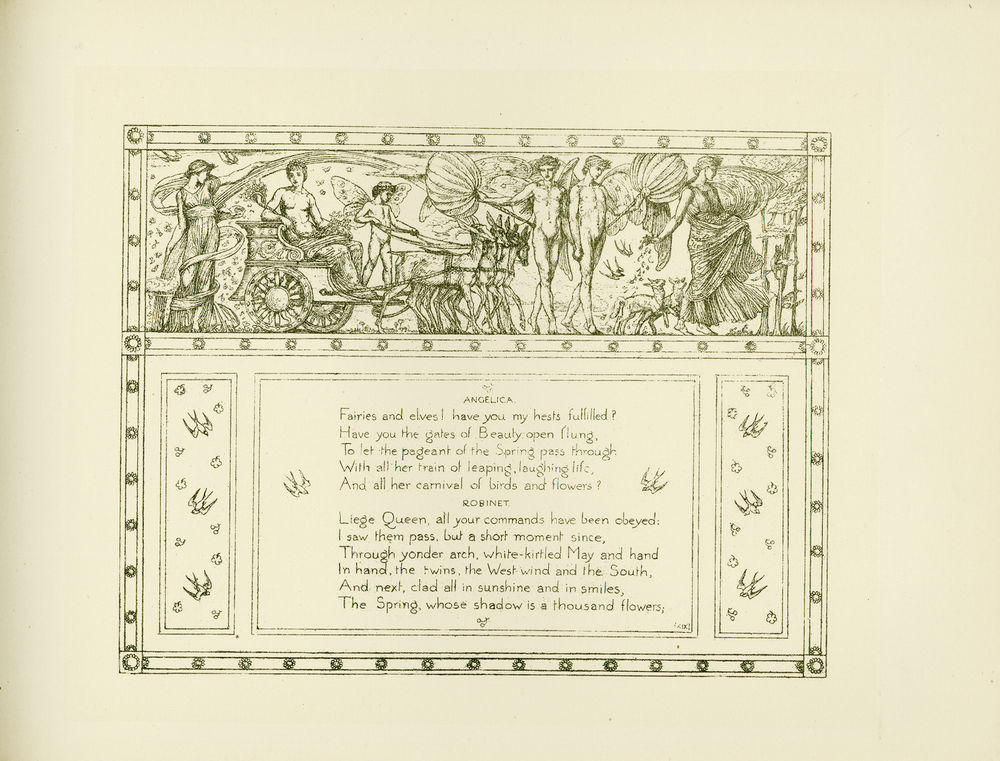 ANGELICA.
Fairies and elves! have you my hests fulfilled?
Have you the gates of Beauty open flung,
To let the pageant of the Spring pass through
With all her train of leaping, laughing life,
And all her carnival of birds and flowers?
ROBINET.
Liege Queen, all your commands have been obeyed:
I saw them pass, but a short moment since,
Through yonder arch, white-kirtled May and hand
In hand, the twins, the West wind and the South,
And next, clad all in sunshine and in smiles,
The Spring, whose shadow is a thousand flowers;